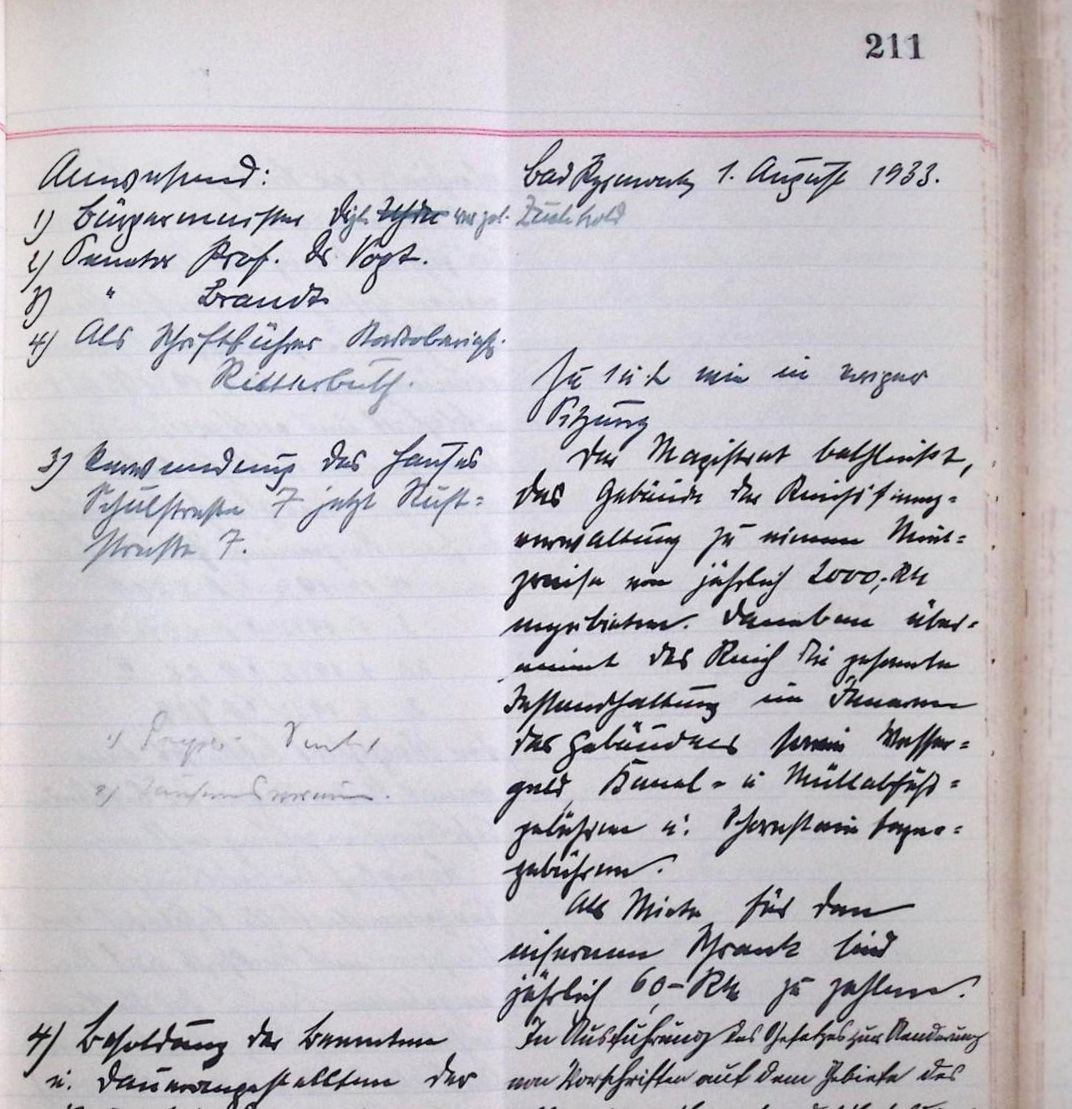 211
Anwesend:
1) Bürgermeister Zuchhold
2) Senator Prof. Dr Vogt.
3) " Brandt
4) Als Schriftführer Stadtobersekr.
Ritterbusch.
3) Verwendung des Hauses
Schulstraße 7 jetzt Rust=
straße 7.
1)
2)
4) Besoldung der Beamten
u. Dauerangestellten der
Bad Pyrmont, 1. August 1933.
Zu 1 u. 2 wie in voriger
Sitzung
Der Magistrat beschließt,
das Gebäude der Reichsfinanz=
verwaltung zu einem Miet=
preise von jährlich 2000,- RM
anzubieten. Daneben über=
nimmt das Reich die gesamte
Instandhaltung im Innern
des Gebäudes sowie Wasser=
geld, Kanal- u Müllabfuhr=
gebühren u. Schornsteinfeger=
gebühren.
Als Miete für den
eisernen Schrank sind
jährlich 60,- RM zu zahlen.
In Ausführung des Gesetzes zur Aenderung
von Vorschriften auf dem Gebiete des